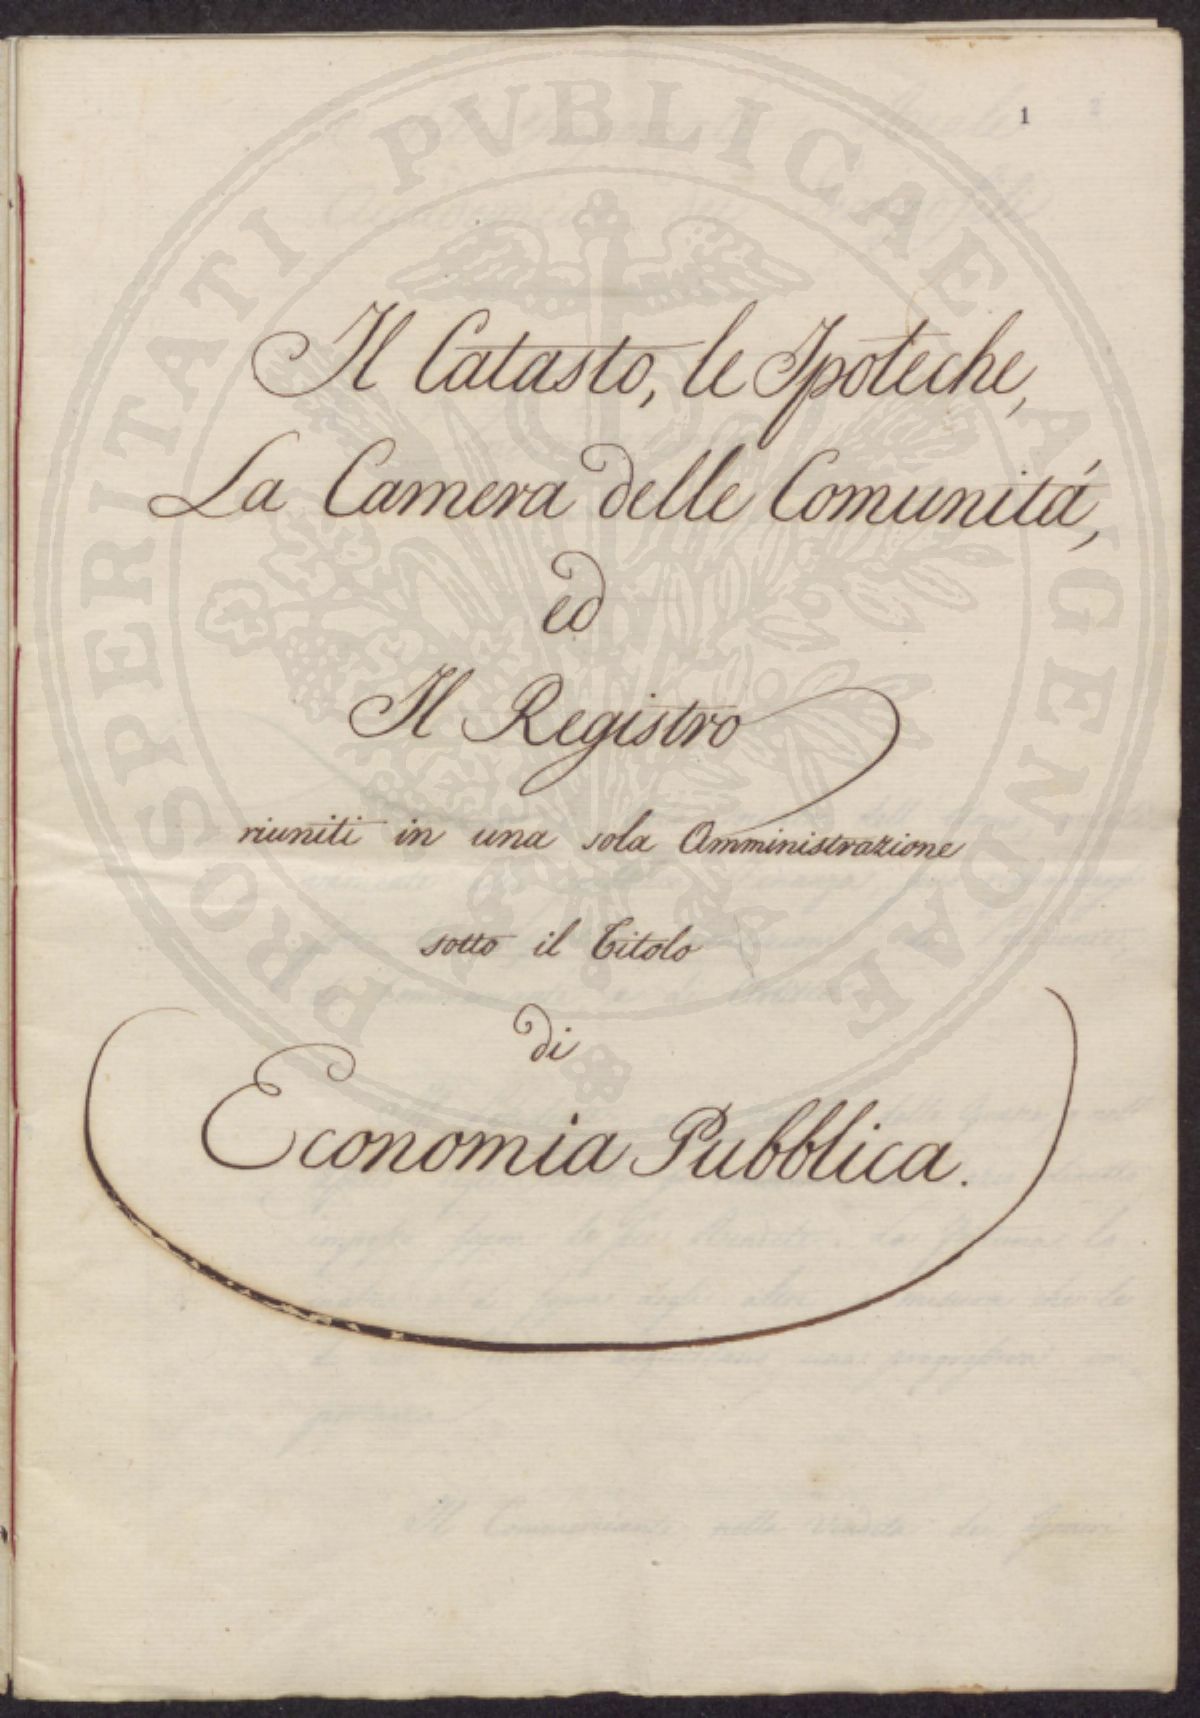 1
Il Catasto, le Ipoteche,
La Camera delle Comunitá,
ed
Il Registro
riuniti in una sola Amministrazione
sotto il Titolo
di
Economia Pubblica.
PROSPERITATI PVBLICAE AVGENDAE